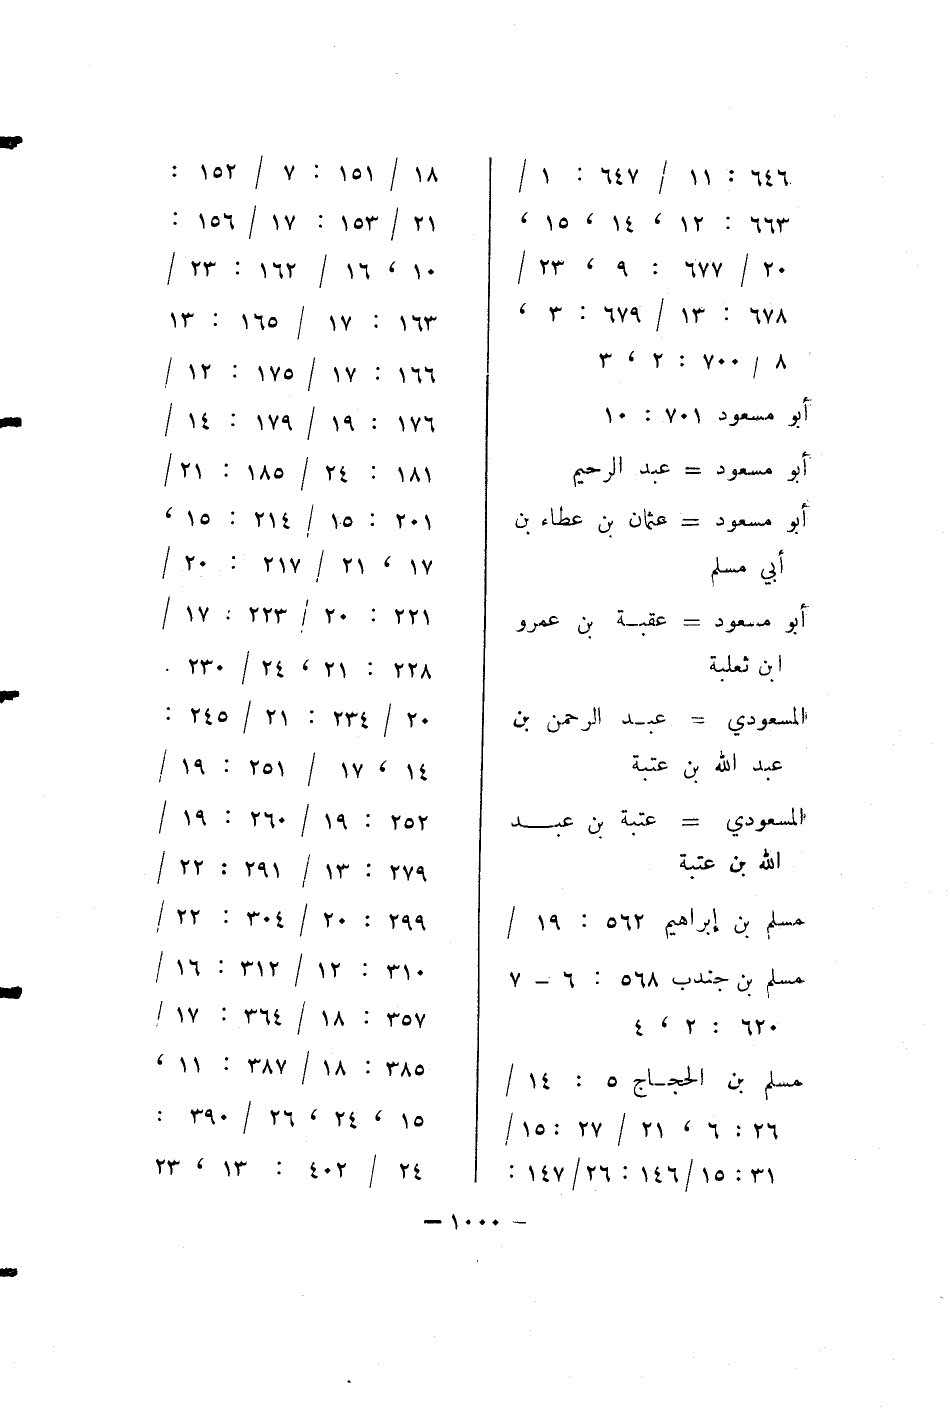 ٦٤٦ : ١١ / ٦٤٧ : ١ /
٦٦٣ : ١٢ ، ١٤ ، ١٥ ،
٢٠ / ٦٧٧ : ٩ ، ٢٣ /
٦٧٨ : ١٣ / ٦٧٩ : ٣ ،
٨ / ٧٠٠ : ٢ ، ٣
أبو مسعود ٧٠١ : ١٠
أبو مسعود = عبد الرحيم
أبو مسعود = عثمان بن عطاء بن
أبي مسلم
أبو مسعود = عقبة بن عمرو
ابن ثعلبة
المسعودي = عبد الرحمن بن
عبد الله بن عتبة
المسعودي = عتبة بن عبد
الله بن عتبة
مسلم بن إبراهيم ٥٦٢ : ١٩ /
مسلم بن جندب ٥٦٨ : ٦ – ٧
٦٢٠ : ٢ ، ٤
مسلم بن الحجاج ٥ : ١٤ /
٢٦ : ٦ ، ٢١ / ٢٧ : ١٥ /
٣١ : ١٥ / ١٤٦ : ٢٦ / ١٤٧ :
١٨ / ١٥١ : ٧ / ١٥٢ :
٢١ / ١٥٣ : ١٧ / ١٥٦ :
١٠ ، ١٦ / ١٦٢ : ٢٣ /
١٦٣ : ١٧ / ١٦٥ : ١٣
١٦٦ : ١٧ / ١٧٥ : ١٢ /
١٧٦ : ١٩ / ١٧٩ : ١٤ /
١٨١ : ٢٤ / ١٨٥ : ٢١ /
٢٠١ : ١٥ / ٢١٤ : ١٥ ،
١٧ ، ٢١ / ٢١٧ : ٢٠ /
٢٢١ : ٢٠ / ٢٢٣ : ١٧ /
٢٢٨ : ٢١ ، ٢٤ / ٢٣٠ .
٢٠ / ٢٣٤ : ٢١ / ٢٤٥ :
١٤ ، ١٧ / ٢٥١ : ١٩ /
٢٥٢ : ١٩ / ٢٦٠ : ١٩ /
٢٧٩ : ١٣ / ٢٩١ : ٢٢ /
٢٩٩ : ٢٠ / ٣٠٤ : ٢٢ /
٣١٠ : ١٢ / ٣١٢ : ١٦ /
٣٥٧ : ١٨ / ٣٦٤ : ١٧ /
٣٨٥ : ١٨ / ٣٨٧ : ١١ ،
١٥ ، ٢٤ ، ٢٦ / ٣٩٠ :
٢٤ / ٤٠٢ : ١٣ ، ٢٣
– ١٠٠٠ –